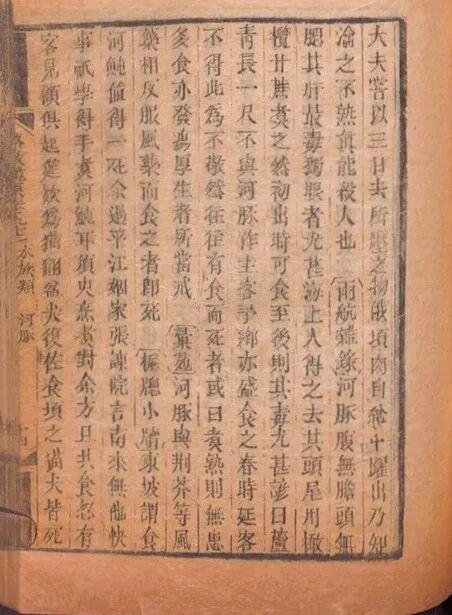 大夫嘗以三日去所塵之物俄頃肉自中躍出乃知
淪之不熟眞能殺人也 雨航雜錄河豚腹無膽頭無
腮其肝最毒獨眼者尤甚海上人得之去其頭尾用橄
欖甘蔗煮之然初出時可食至後則其毒尤甚諺曰蘆
青長一尺不與河豚作主客予鄉亦盛食之春時延客
不得此為不敬然往往有食而死者或曰煮熟則無患
多食亦發瘍厚生者所當戒 彙苑河豚與荊芥等風
藥相反服風藥而食之者卽死 楓牕小牘東坡謂食
河魨值得一死余過平江姻家張諫院言南來無他快
事祇學得手煮河魨耳須臾烹煮對余方且共食忽有
客見顧俱起延款爲猫翻盆犬復佐食頃之猫犬皆死
水族類 河豚